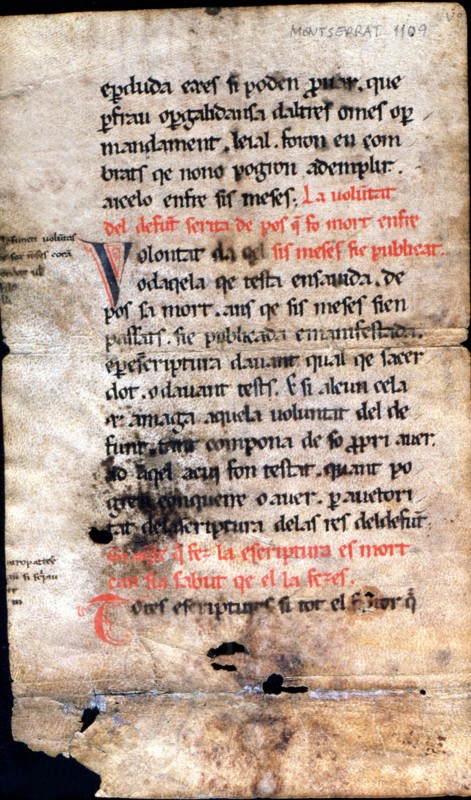 MONTSERRAT 1109
eꝑduda eres si poden ꝓuar. que
ꝑfrau oꝑgalidansa daltres omes oꝑ
mandament. leial. foron en com
brats qe nono pogron ademplir.
aicelo enfre sis meses; La uolūtat
del defūt scrita de pos q̄ fo mort enfre
Volontat da qel sis meses sie publicat.
odaqela qe testa ensauida. de
pos sa mort. ans qe sis meses sien
passats. sie publicada emanifestada.
eꝑescriptura dauant qual qe sacer
dot. o dauant tests. E si alcun cela
amaga aquela uoluntat del de
funt. tant compona de so ꝓpri auer.
ad aqel acui fon testat. quant po
gren conquerre o auer. ꝑ auctori
tat del escriptura delas res deldefūt.
q̄ fez la escriptura es mort
can sia sabut qe el la fezes.
Totes escriptures si tot el q̄